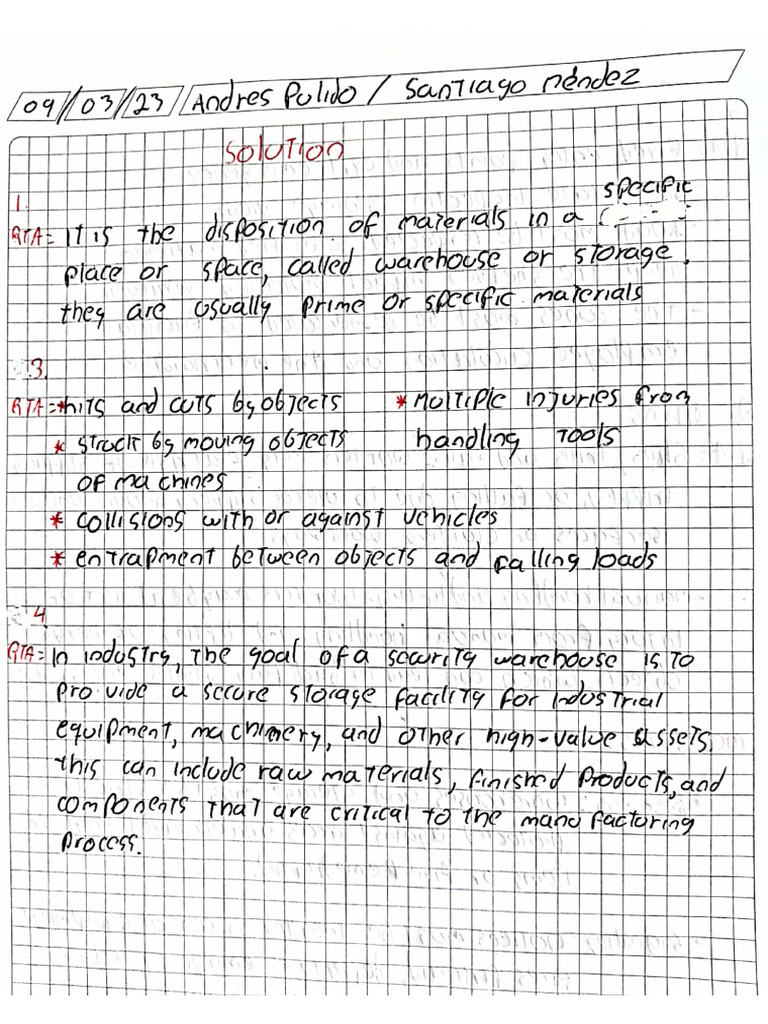 09/03/23 Andres Pulido / Santiago Méndez
Solution
1.
specific
RTA= It is the disposition of materials in a
place or space, called warehouse or storage.
they are usually prime or specific materials
3.
RTA= * hits and cuts by objects * Multiple injuries from
* struck by moving objects handling tools
of machines
* collisions with or against vehicles
* entrapment between objects and falling loads
4.
RTA= In industry, the goal of a security warehouse is to
provide a secure storage facility for industrial
equipment, machinery, and other high-value assets.
this can include raw materials, finished products, and
components that are critical to the manufacturing
process.